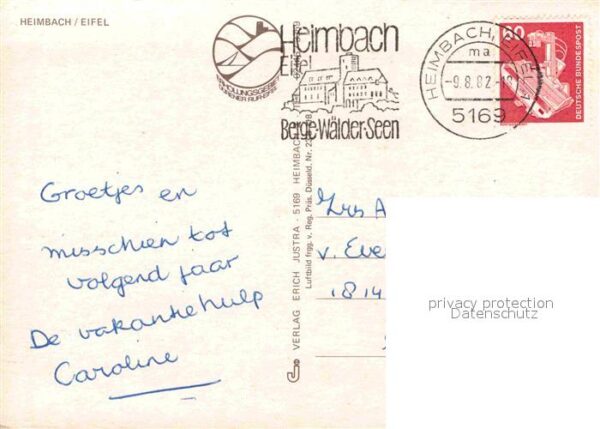 HEIMBACH / EIFEL
Heimbach
Eifel
Berge-Wälder-Seen
HEIMBACH, EIFEL
ma
-9.8.82-18
5169
60
DEUTSCHE BUNDESPOST
Groetjes en
misschien tot
volgend jaar
De vakantiehulp
Caroline
VERLAG ERICH JUSTRA - 5169 HEIMBACH
Luftbild frgg. v. Reg. Präs. Düsseld. Nr.
v. Eve
1814
privacy protection
Datenschutz